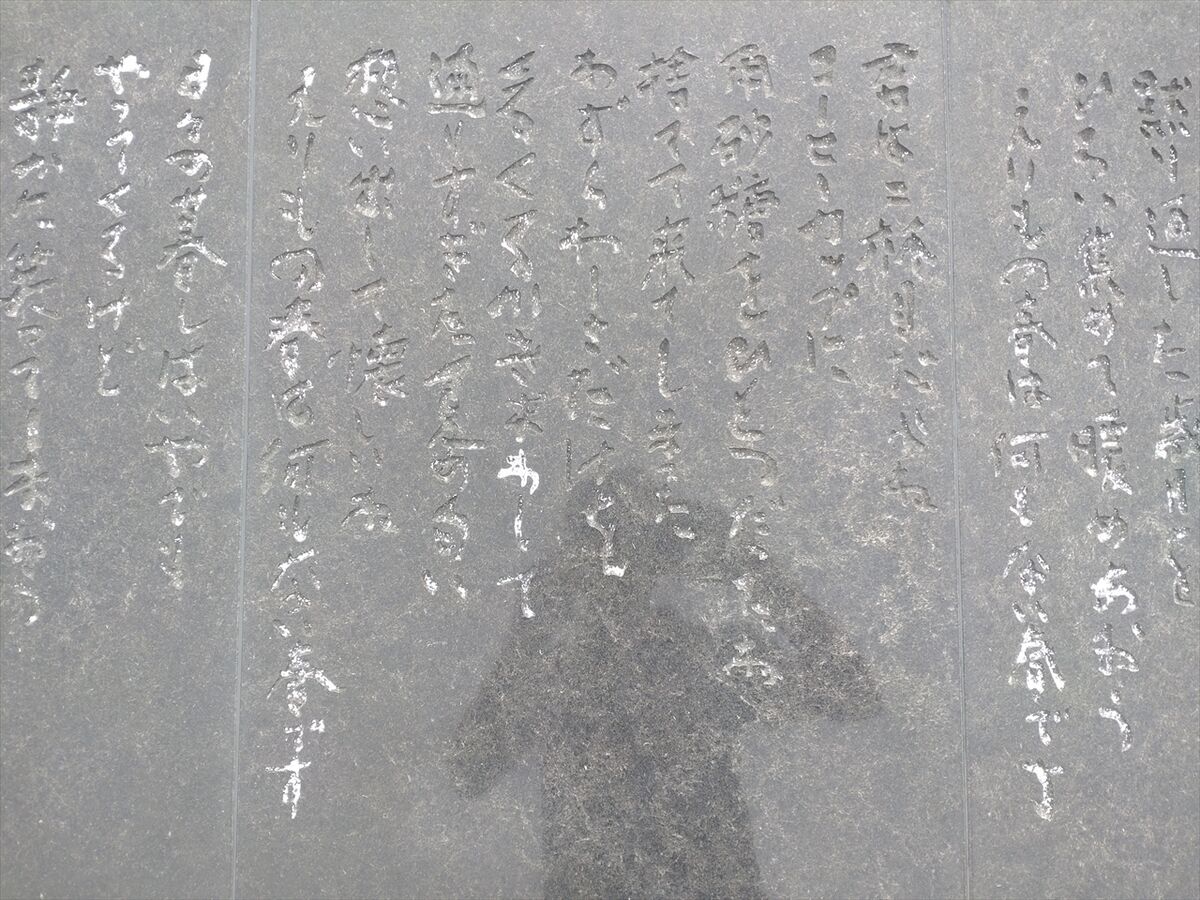 黙り通した歳月を
ひろい集めて暖めあおう
えりもの春は何もない春です
君は二杯目だよね
コーヒーカップに
角砂糖をひとつだったね
捨てて来てしまった
わずらわしさだけを
くるくるかきまわして
通りすぎた夏の匂い
想い出して懐しいね
えりもの春は何もない春です
日々の暮しはいやでも
やってくるけど
静かに笑ってしまおう